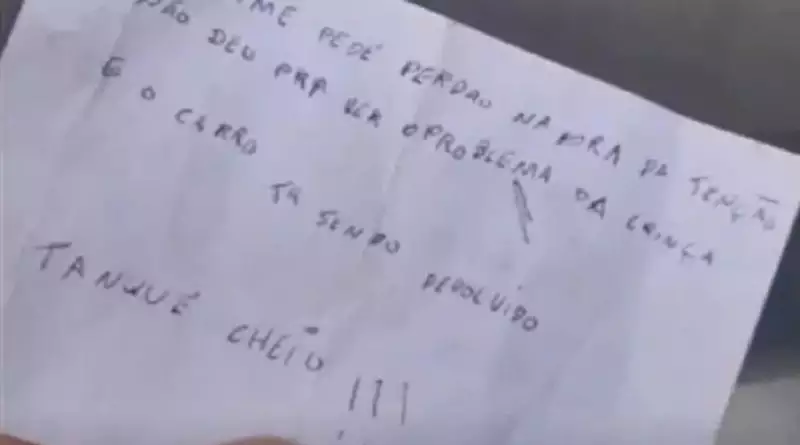 PEDE PERDAO NA ORA DA TENÇÃO
NÃO DEU PRA VER O PROBLEMA DA CRINÇA
E O CARRO TA SENDO DEVOLVIDO
TANQUÉ CHEIO !!!